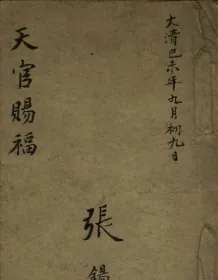 大清己未年九月初九日
張錫
天官賜福